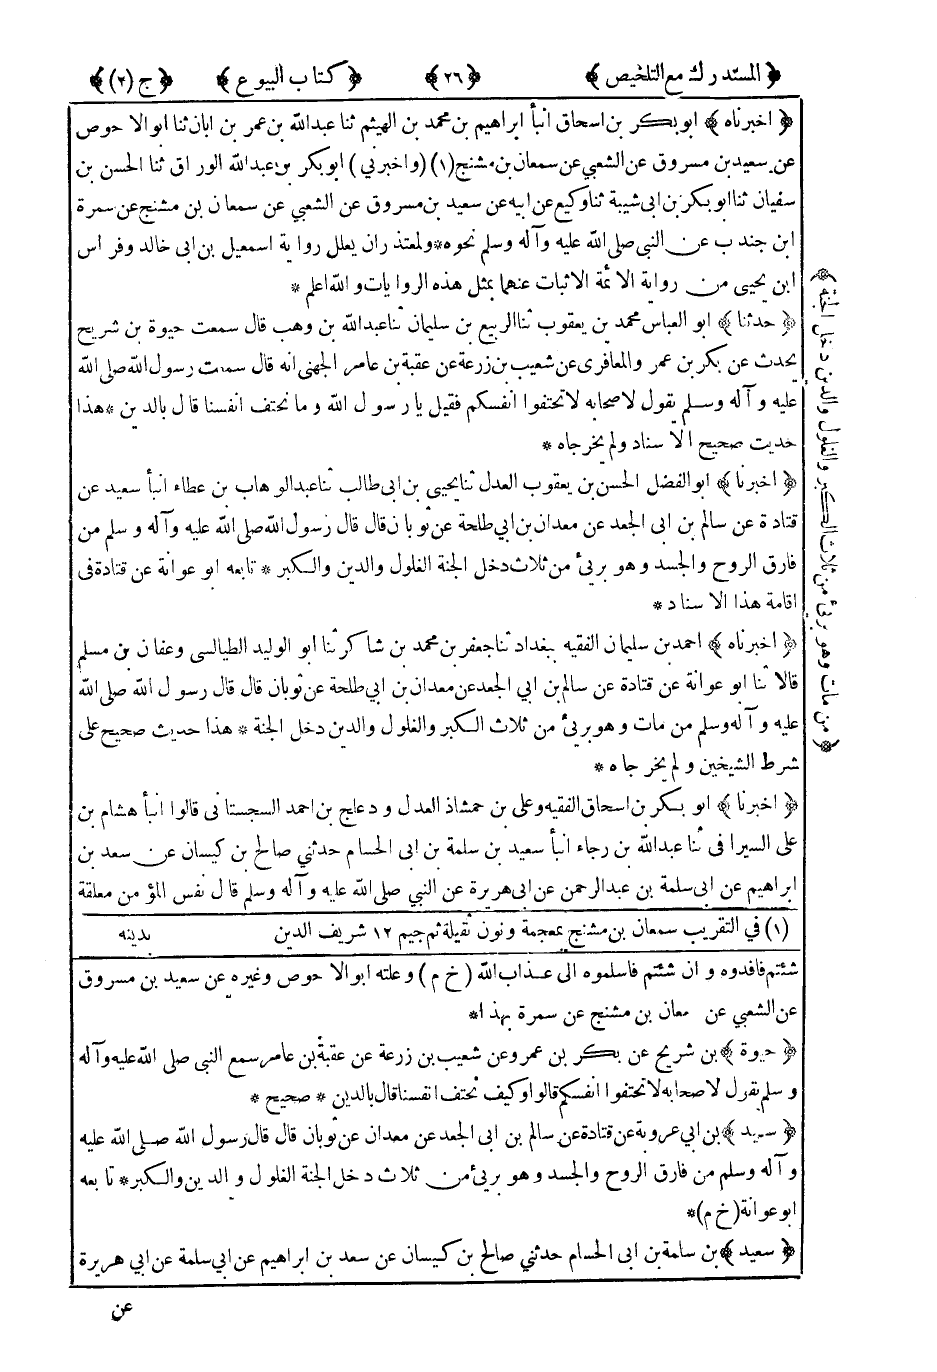 ﴿ المستدرك مع التلخيص ﴾ ﴿ ٢٦ ﴾ ﴿ كتاب البيوع ﴾ ﴿ ج (٢) ﴾
﴿ اخبرناه ﴾ ابو بكر بن اسحاق انبأ ابراهيم بن محمد بن الهيثم ثنا عبدالله بن عمر بن ابان ثنا ابو الاحوص
عن سعيد بن مسروق عن الشعبي عن سمعان بن مشنج (١) (واخبرني) ابو بكر بن عبدالله الوراق ثنا الحسن بن
سفيان ثنا ابو بكر بن ابى شيبة ثنا وكيع عن ابيه عن سعيد بن مسروق عن الشعبي عن سمعان بن مشنج عن سمرة
ابن جندب عن النبي صلى الله عليه وآله وسلم نحوه * ولمعتذر ان يعلل رواية اسمعيل بن ابى خالد وفراس
ابن يحيى من رواية الائمة الاثبات عنهما بمثل هذه الروايات والله اعلم *
﴿ حدثنا ﴾ ابو العباس محمد بن يعقوب ثنا الربيع بن سليمان ثنا عبدالله بن وهب قال سمعت حيوة بن شريح
يحدث عن بكر بن عمر والمعافرى عن شعيب بن زرعة عن عقبة بن عامر الجهنى انه قال سمعت رسول الله صلى الله
عليه وآله وسلم يقول لاصحابه لا تخيفوا انفسكم فقيل يا رسول الله وما نخيف انفسنا قال بالدين * هذا
حديث صحيح الاسناد ولم يخرجاه *
﴿ اخبرنا ﴾ ابو الفضل الحسن بن يعقوب العدل ثنا يحيى بن ابى طالب ثنا عبد الوهاب بن عطاء انبأ سعيد عن
قتادة عن سالم بن ابى الجعد عن معدان بن ابي طلحة عن ثوبان قال قال رسول الله صلى الله عليه وآله وسلم من
فارق الروح والجسد وهو برئ من ثلاث دخل الجنة الغلول والدين والكبر * تابعه ابو عوانة عن قتادة فى
اقامة هذا الاسناد *
﴿ اخبرناه ﴾ احمد بن سليمان الفقيه ببغداد ثنا جعفر بن محمد بن شاكر ثنا ابو الوليد الطيالسى وعفان بن مسلم
قالا ثنا ابو عوانة عن قتادة عن سالم بن ابي الجعد عن معدان بن ابي طلحة عن ثوبان قال قال رسول الله صلى الله
عليه وآله وسلم من مات وهو برئ من ثلاث الكبر والغلول والدين دخل الجنة * هذا حديث صحيح على
شرط الشيخين ولم يخرجاه *
﴿ اخبرنا ﴾ ابو بكر بن اسحاق الفقيه وعلى بن حمشاذ العدل ودعلج بن احمد السجستانى قالوا انبأ هشام بن
على السيرافى ثنا عبدالله بن رجاء انبأ سعيد بن سلمة بن ابى الحسام حدثني صالح بن كيسان عن سعد بن
ابراهيم عن ابى سلمة بن عبدالرحمن عن ابى هريرة عن النبي صلى الله عليه وآله وسلم قال نفس المؤمن معلقة
بدينه
(١) في التقريب سمعان بن مشنج بمعجمة ونون ثقيلة ثم جيم ١٢ شريف الدين
شئتم فافدوه وان شئتم فاسلموه الى عذاب الله (خ م) وعلته ابو الاحوص وغيره عن سعيد بن مسروق
عن الشعبي عن معان بن مشنج عن سمرة بهذا *
﴿ حيوة ﴾ بن شريح عن بكر بن عمرو عن شعيب بن زرعة عن عقبة بن عامر سمع النبى صلى الله عليه وآله
وسلم يقول لاصحابه لا تخيفوا انفسكم قالوا وكيف نخيف انفسنا قال بالدين * صحيح *
﴿ سعيد ﴾ بن ابي عروبة عن قتادة عن سالم بن ابى الجعد عن معدان عن ثوبان قال قال رسول الله صلى الله عليه
وآله وسلم من فارق الروح والجسد وهو برئ من ثلاث دخل الجنة الغلول والدين والكبر * تابعه
ابو عوانة (خ م) *
﴿ سعيد ﴾ بن سلمة بن ابى الحسام حدثني صالح بن كيسان عن سعد بن ابراهيم عن ابي سلمة عن ابي هريرة
عن
﴿ من مات وهو برئ من ثلاث الكبر والغلول والدين دخل الجنة ﴾